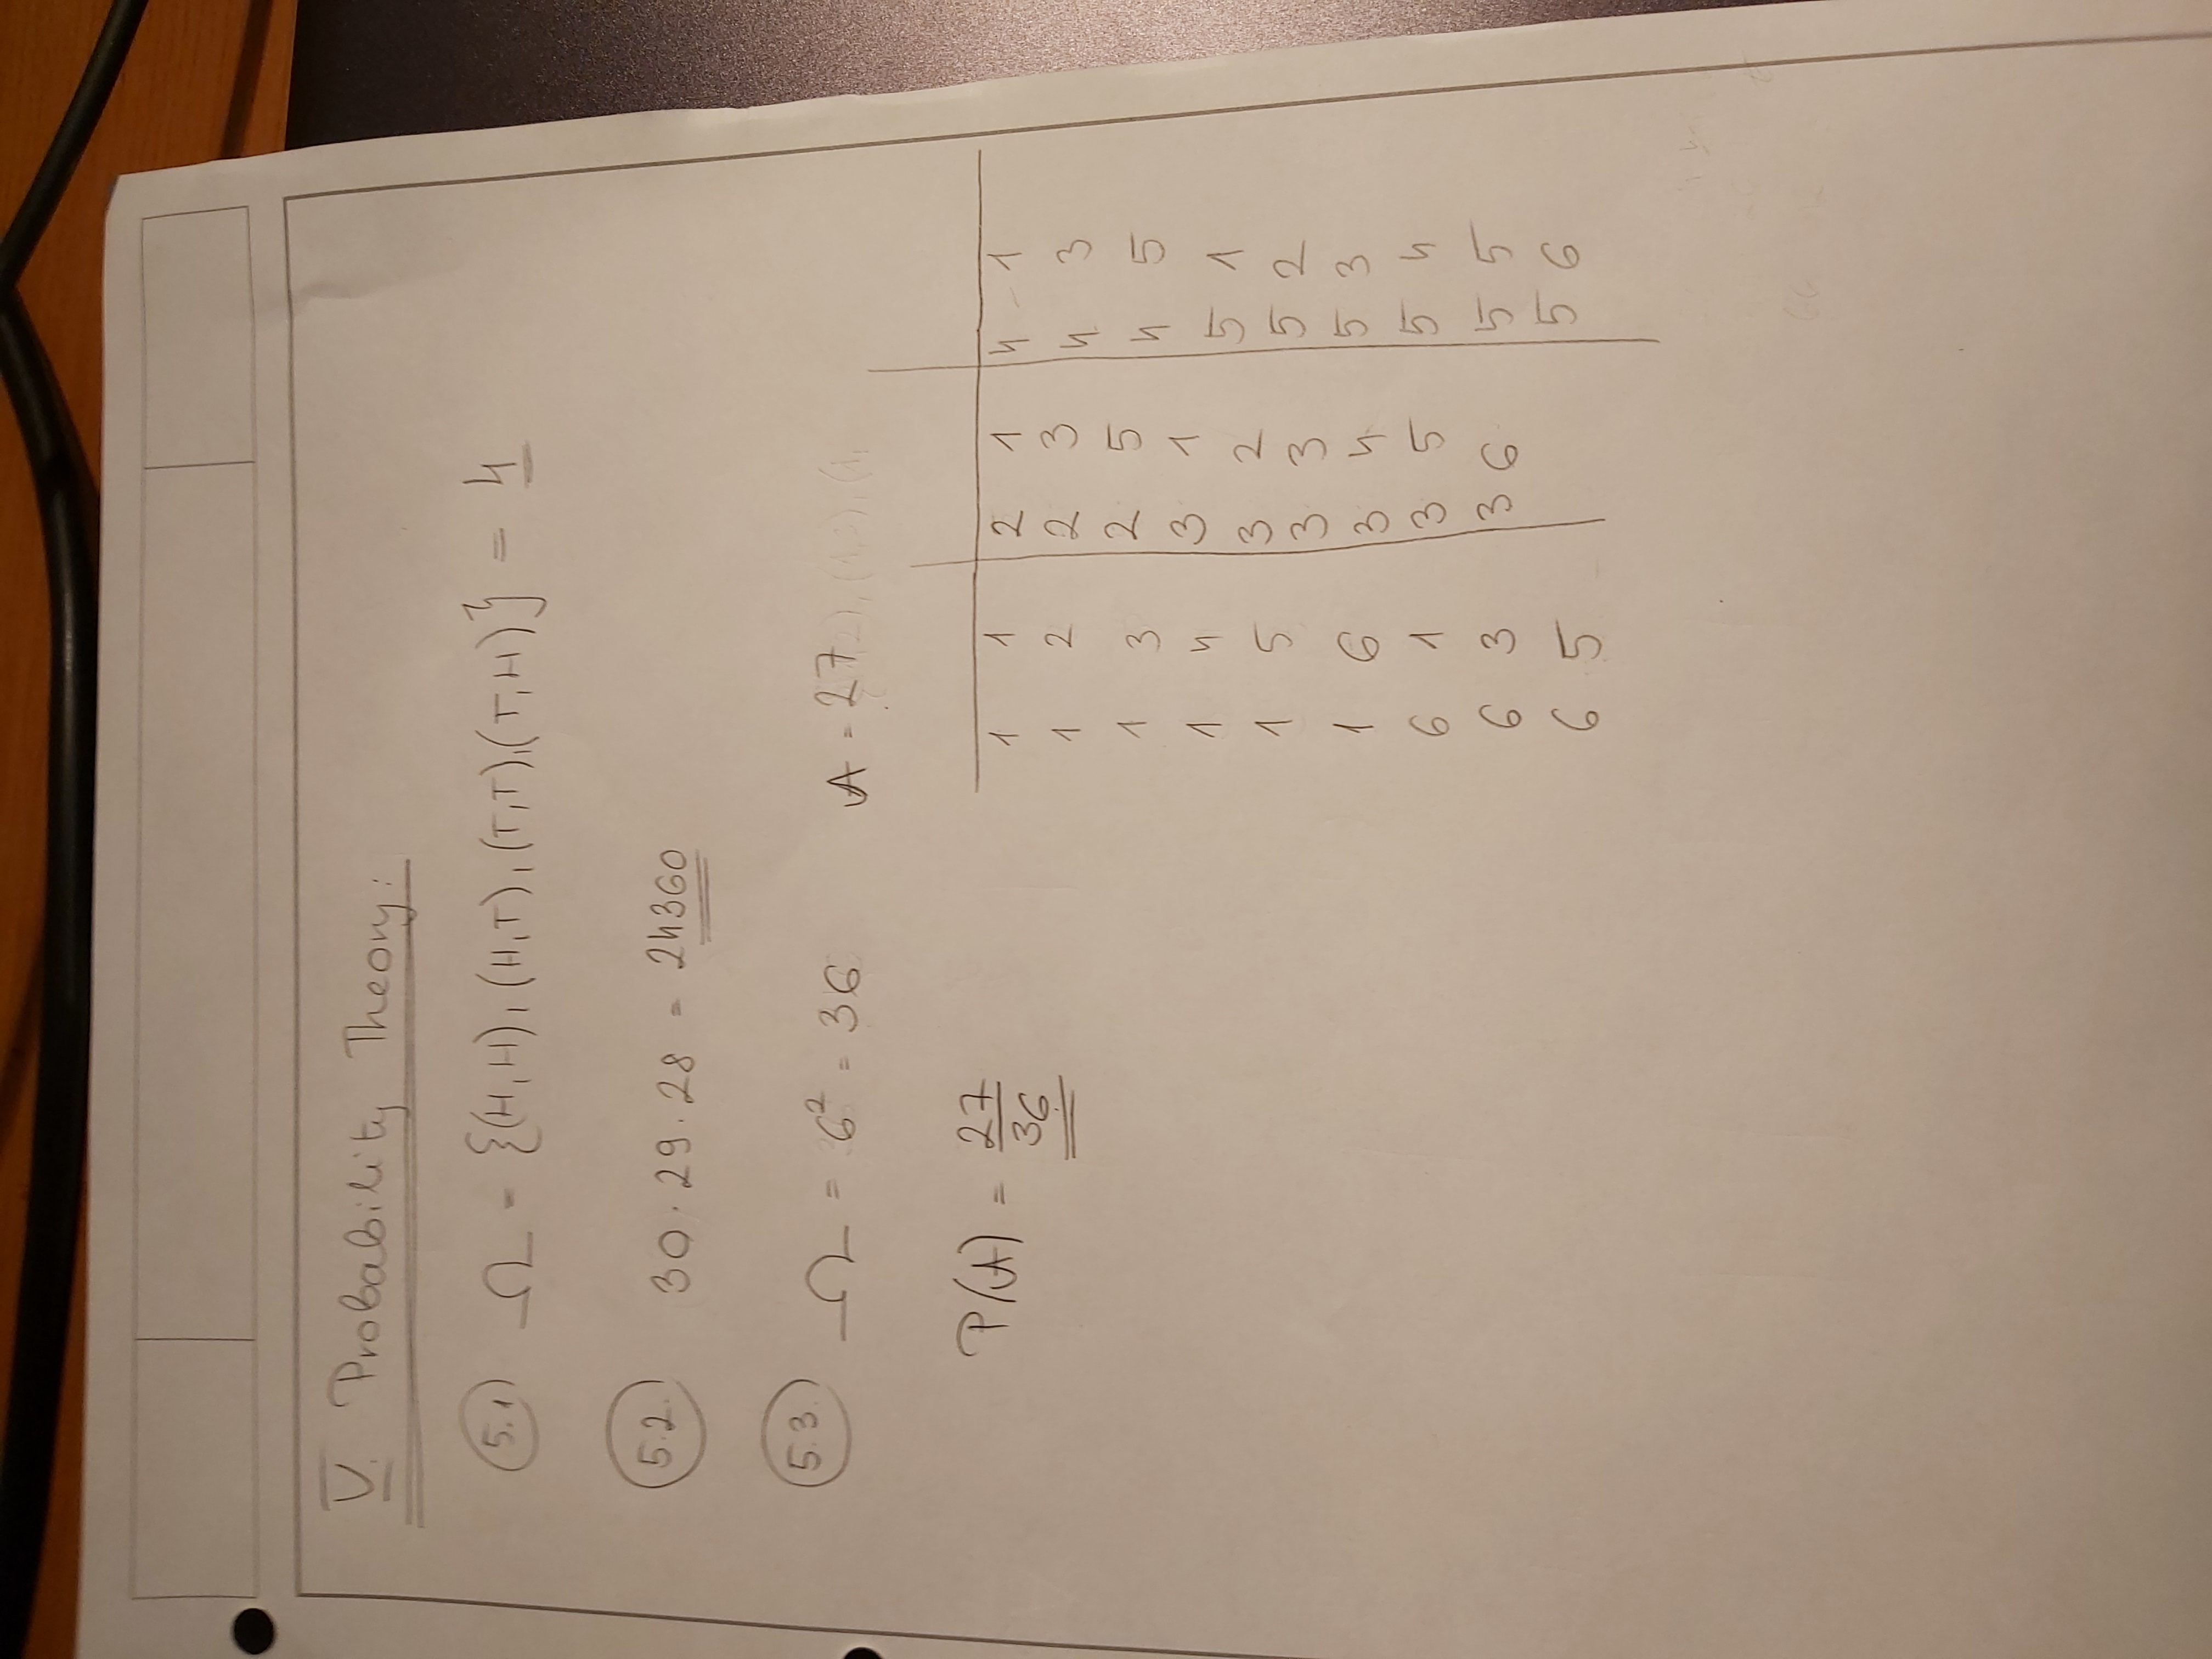 V. Probability Theory:
5.1) Ω = {(H,H), (H,T), (T,T), (T,H)} = 4
5.2.) 30 · 29 · 28 = 24360
5.3.) Ω = 6² = 36 A = 27
P(A) = 27/36
1 1 | 2 1 | 4 1
1 2 | 2 3 | 4 3
1 3 | 2 5 | 4 5
1 4 | 3 1 | 5 1
1 5 | 3 2 | 5 2
1 6 | 3 3 | 5 3
6 1 | 3 4 | 5 4
6 3 | 3 5 | 5 5
6 5 | 3 6 | 5 6